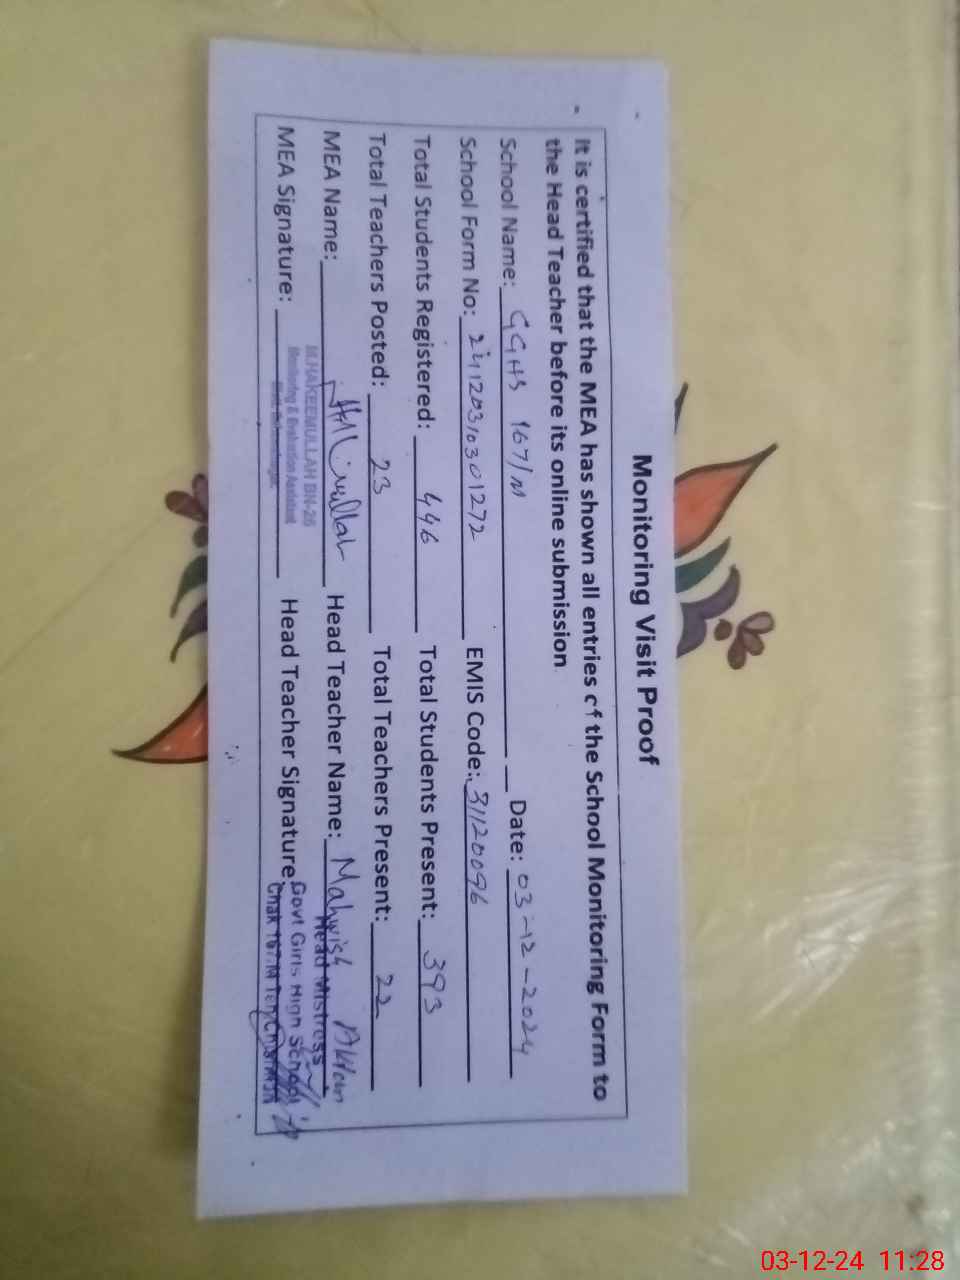 Monitoring Visit Proof
It is certified that the MEA has shown all entries of the School Monitoring Form to
the Head Teacher before its online submission.
School Name: GGHS 167/M Date: 03-12-2024
School Form No: 24120310301272 EMIS Code: 31120096
Total Students Registered: 446 Total Students Present: 393
Total Teachers Posted: 23 Total Teachers Present: 22
MEA Name: Head Teacher Name: Mahwish
M.HAKEEMULLAH BN-26
Monitoring & Evaluation Assistant
Head Mistress
MEA Signature: Head Teacher Signature:
Govt Girls High School
Chak 167/M
03-12-24 11:28